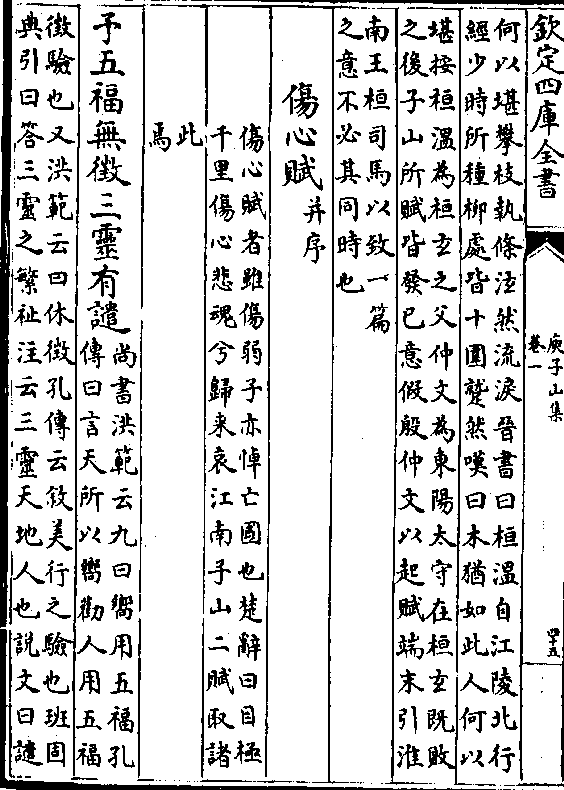 欽定四庫全書
庾子山集
卷一
四十五
何以堪攀枝執條泫然流淚晉書曰桓溫自江陵北行
經少時所種柳處皆十圍蹵然嘆曰木猶如此人何以
堪按桓溫為桓玄之父仲文為東陽太守在桓玄既敗
之後子山所賦皆發已意假殷仲文以起賦端末引淮
南王桓司馬以致一篇
之意不必其同時也
傷心賦并序
傷心賦者雖傷弱子亦悼亡國也楚辭曰目極
千里傷心悲魂兮歸来哀江南子山二賦取諸
此
焉
予五福無徵三靈有譴
尚書洪範云九曰嚮用五福孔
傳曰言天所以嚮勸人用五福
徴驗也又洪範云曰休徴孔傳云敘美行之驗也班固
典引曰答三靈之繁祉注云三靈天地人也說文曰譴